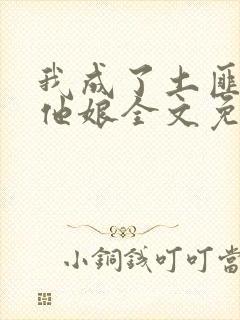 我成了土匪
他娘全文免
小銅錢叮叮當